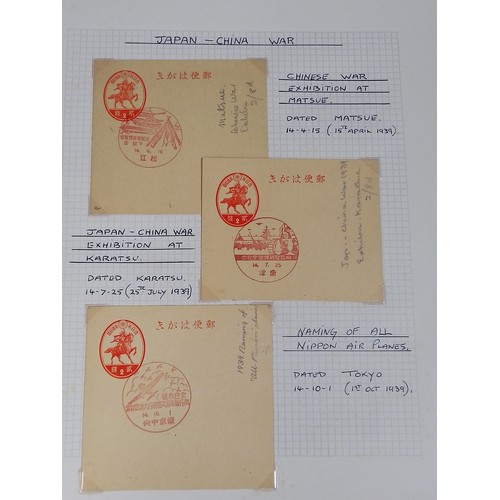 JAPAN - CHINA WAR
きがは便郵
Matsue.
2/8d
14. 4. 15
江松
CHINESE WAR
EXHIBITION AT
MATSUE.
DATED MATSUE.
14-4-15 (15TH APRIL 1939).
きがは便郵
Jap - China War 1939
2/8d
14. 7. 25
津唐
JAPAN - CHINA WAR
EXHIBITION AT
KARATSU.
DATED KARATSU.
14-7-25 (25TH JULY 1939)
きがは便郵
1939 Naming of
14. 10. 1
東京中央
NAMING OF ALL
NIPPON AIR PLANES.
DATED TOKYO
14-10-1 (1ST OCT 1939).